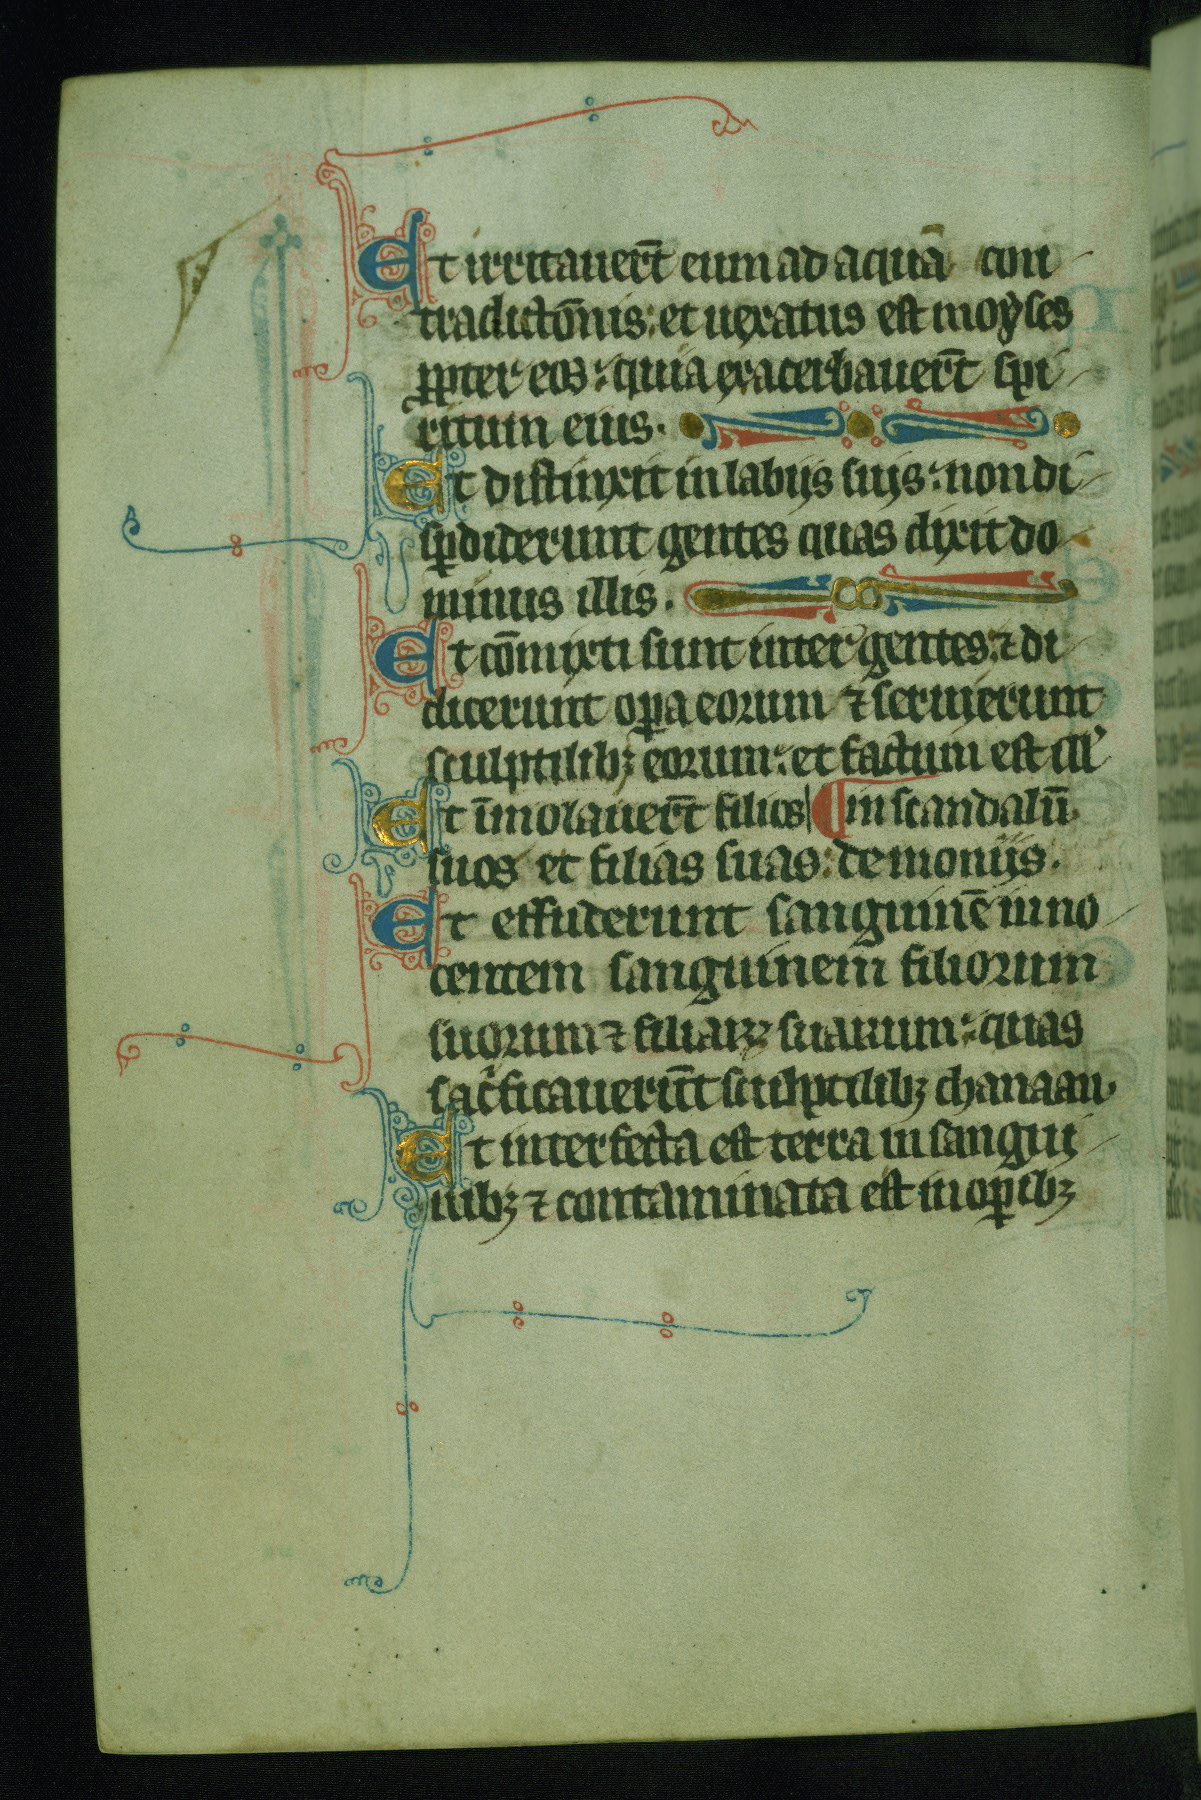 Et irritauer̄t eum ad aquā con
tradictōnis: et uexatus est moẏses
ꝓpter eos: quia exacerbauer̄t spi
ritum eius.
Et distinxit in labijs suijs: non di
sꝑdiderunt gentes quas dixit do
minus illis.
Et cōmixti sunt inter gentes: ⁊ di
dicerunt oꝑa eorum ⁊ seruierunt
sculptilibꝫ eorum: et factum est ill'
Et īmolauer̄t filios ¶ in scandalū.
suos et filias suas: demoniis.
Et effuderunt sanguinē inno
centem sanguinem filiorum
suorum ⁊ filiaꝝ suarum: quas
sac̍ficauerūt sculptilibꝫ chanaan.
Et interfecta est terra in sangui
nibꝫ ⁊ contaminata est in oꝑibꝫ